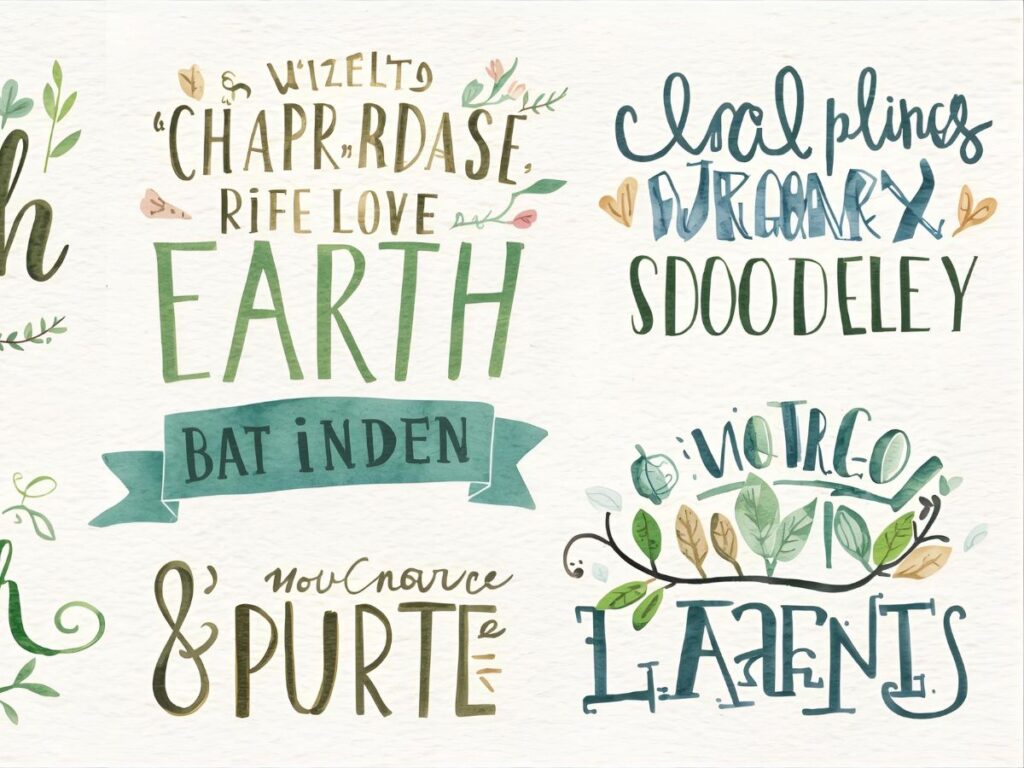 h
W'IZELTD
"CHAPR„RDASE,
RIFE LOVE
EARTH
BAT INDEN
NouCnarce
& PURTE
Clocil plings
SDOO DELEY
VIOTRGO
LAAENTS
h